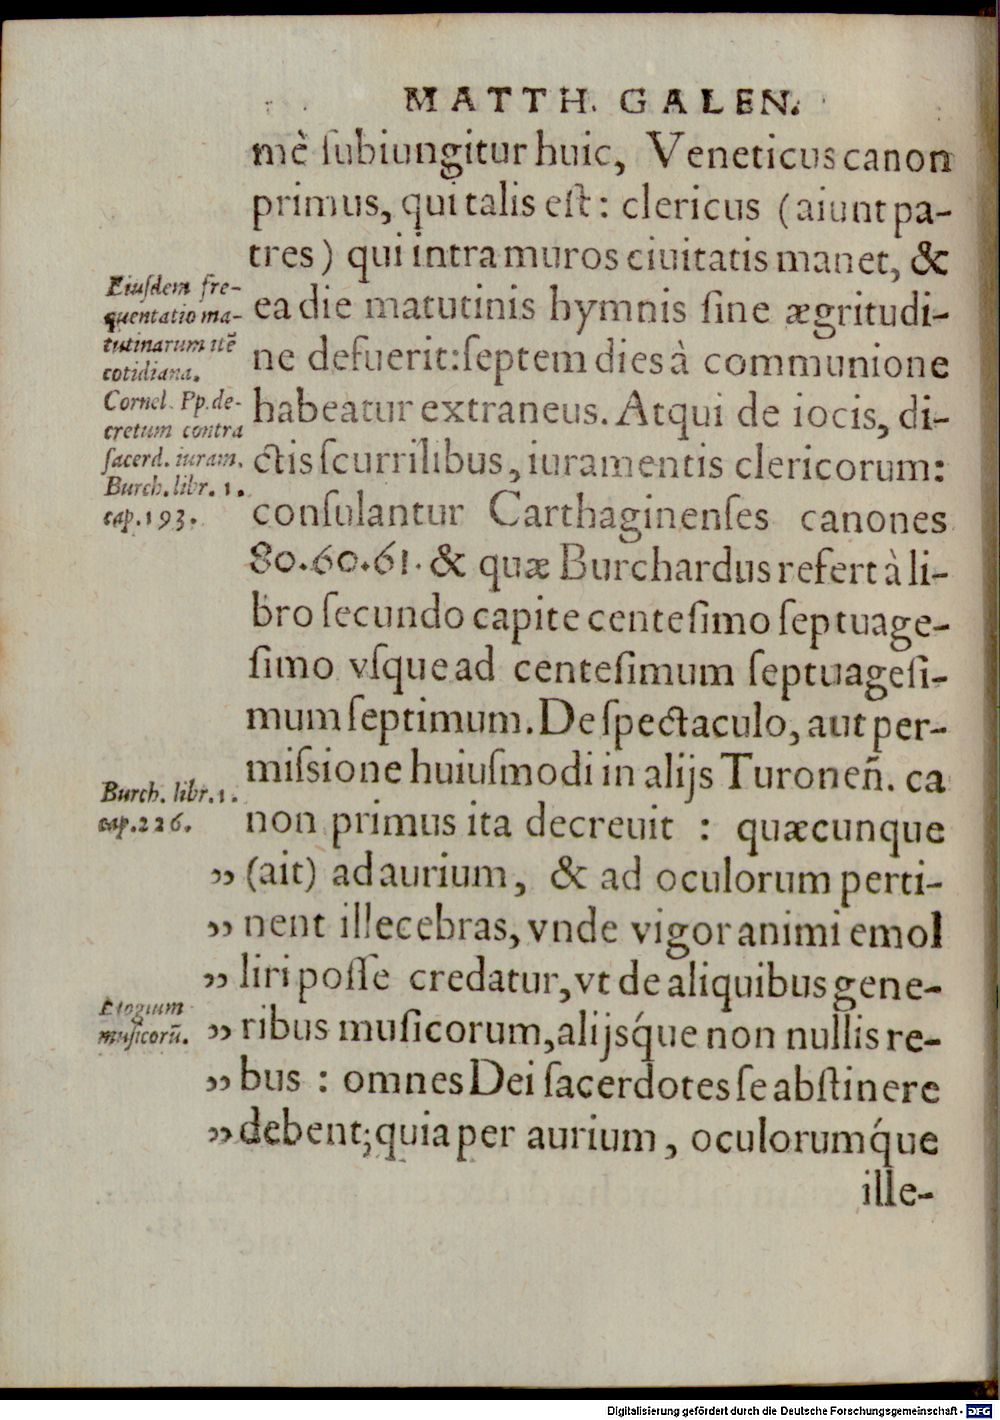 MATTH. GALEN.
mè ſubiungitur huic, Veneticus canon
primus, qui talis eſt: clericus (aiunt pa-
tres) qui intra muros ciuitatis manet, &
ea die matutinis hymnis ſine ægritudi-
ne defuerit: ſeptem dies à communione
habeatur extraneus. Atqui de iocis, di-
ctis ſcurrilibus, iuramentis clericorum:
conſulantur Carthaginenſes canones
80.60.61. & quæ Burchardus refert à li-
bro ſecundo capite centeſimo ſeptuage-
ſimo vſque ad centeſimum ſeptuageſi-
mum ſeptimum. De ſpectaculo, aut per-
miſsione huiuſmodi in alijs Turoneñ. ca
non primus ita decreuit : quæcunque
„ (ait) ad aurium, & ad oculorum perti-
„ nent illecebras, vnde vigor animi emol
„ liri poſſe credatur, vt de aliquibus gene-
„ ribus muſicorum, alijsq́ue non nullis re-
„ bus : omnes Dei ſacerdotes ſe abſtinere
„ debent; quia per aurium, oculorumq́ue
ille-
Eiuſdem fre-
quentatio ma-
tutinarum itẽ
cotidiana.
Cornel. Pp. de-
cretum contra
ſacerd. iuram.
Burch. libr. 1.
cap. 193.
Burch. libr. 1.
cap. 226.
Elogium
muſicorũ.
Digitalisierung gefördert durch die Deutsche Forschungsgemeinschaft - DFG